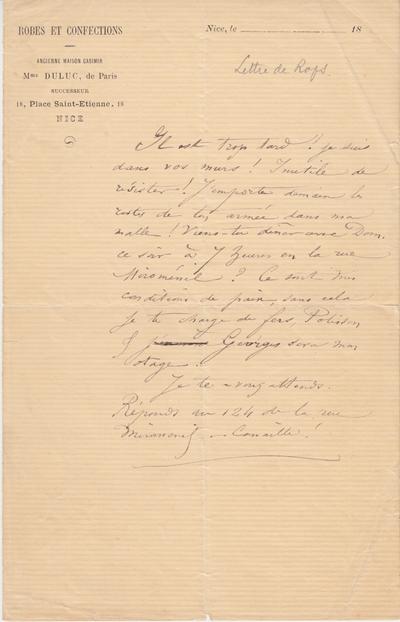 ROBES ET CONFECTIONS
ANCIENNE MAISON CASIMIR
Mme DULUC, de Paris
SUCCESSEUR
18, Place Saint-Etienne, 18
NICE
Nice, le 18
Lettre de Rops.
Il est trop tard ! je suis
dans vos murs ! Inutile de
résister ! J'emporte demain les
restes de ton armée dans ma
malle ! Viens-tu dîner avec Dom.
ce soir à 7 heures en la rue
Miroménil ? Ce sont mes
conditions de paix, sans cela
je te charge de fers, Polisson
& Georges sera mon
otage.
Je te – vous attends.
Réponds au 124 de la rue
Miromenil – Canaille !